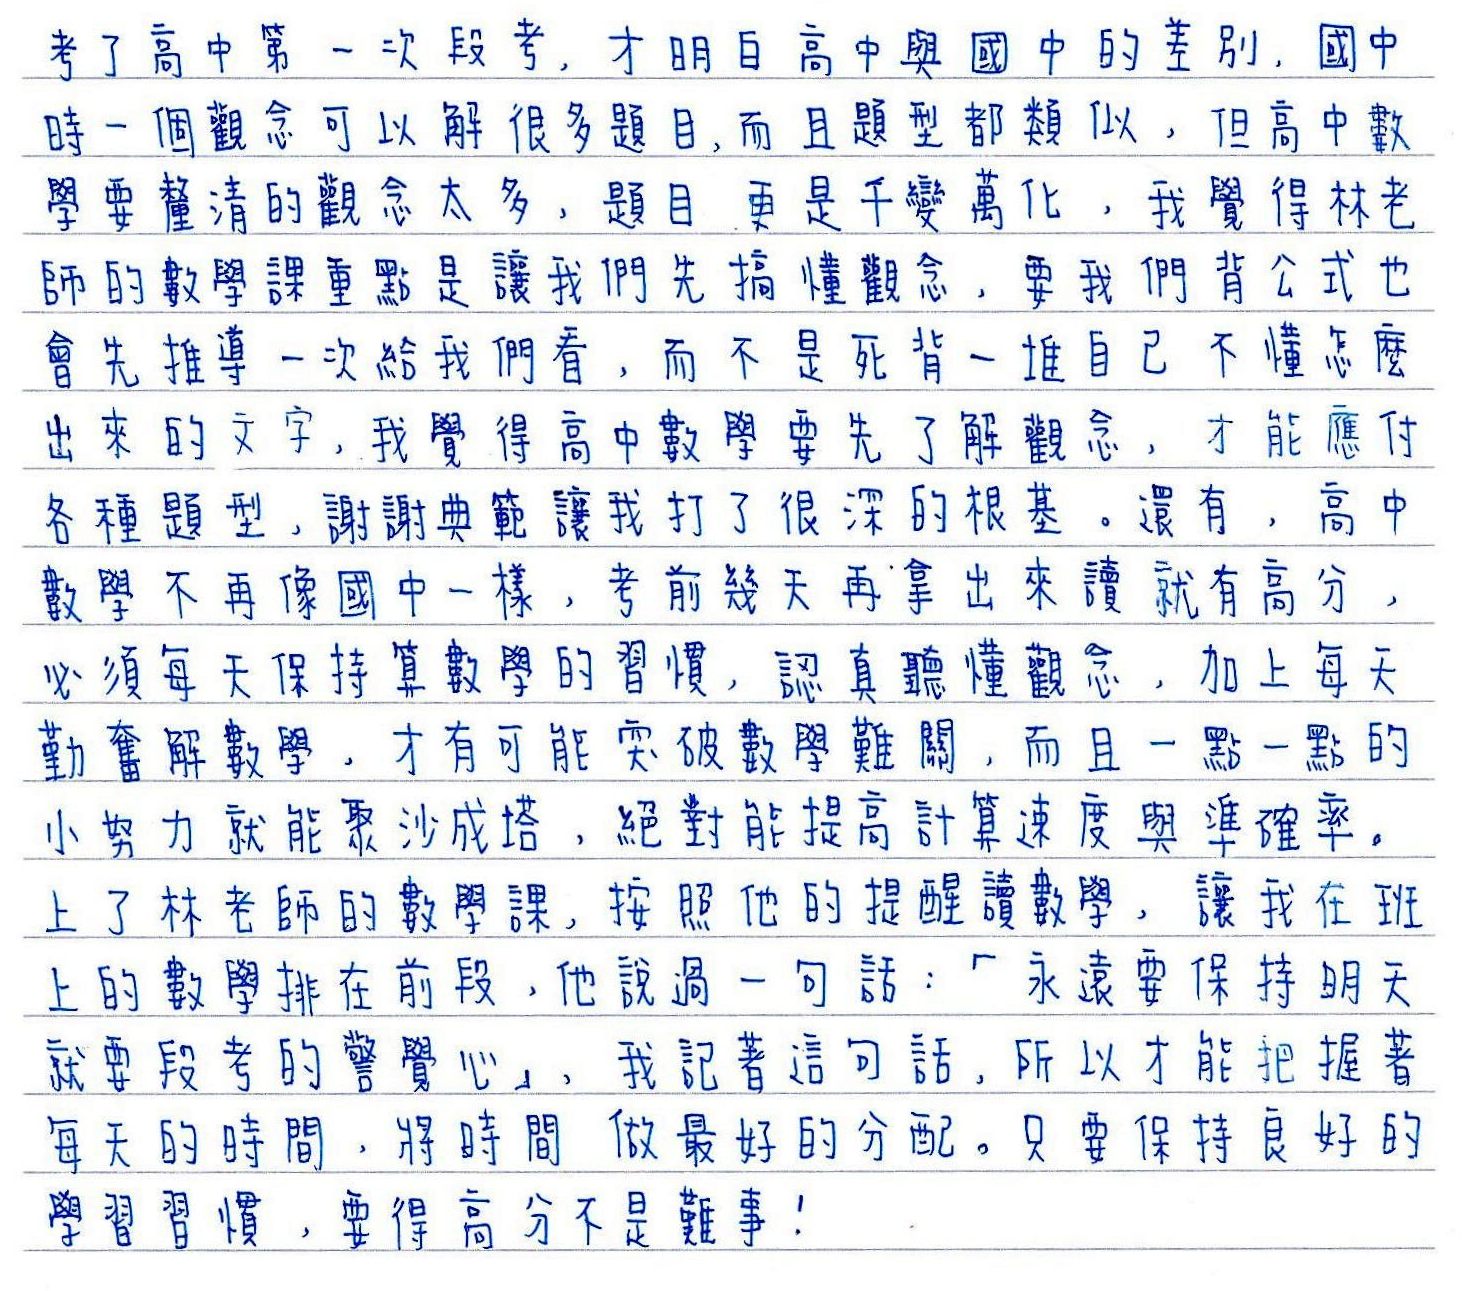 考了高中第一次段考,才明白高中與國中的差別,國中
時一個觀念可以解很多題目,而且題型都類似,但高中數
學要釐清的觀念太多,題目更是千變萬化,我覺得林老
師的數學課重點是讓我們先搞懂觀念,要我們背公式也
會先推導一次給我們看,而不是死背一堆自己不懂怎麼
出來的文字,我覺得高中數學要先了解觀念,才能應付
各種題型,謝謝典範讓我打了很深的根基。還有,高中
數學不再像國中一樣,考前幾天再拿出來讀就有高分,
必須每天保持算數學的習慣,認真聽懂觀念,加上每天
勤奮解數學,才有可能突破數學難關,而且一點一點的
小努力就能聚沙成塔,絕對能提高計算速度與準確率。
上了林老師的數學課,按照他的提醒讀數學,讓我在班
上的數學排在前段,他說過一句話:「永遠要保持明天
就要段考的警覺心」,我記著這句話,所以才能把握著
每天的時間,將時間做最好的分配。只要保持良好的
學習習慣,要得高分不是難事!